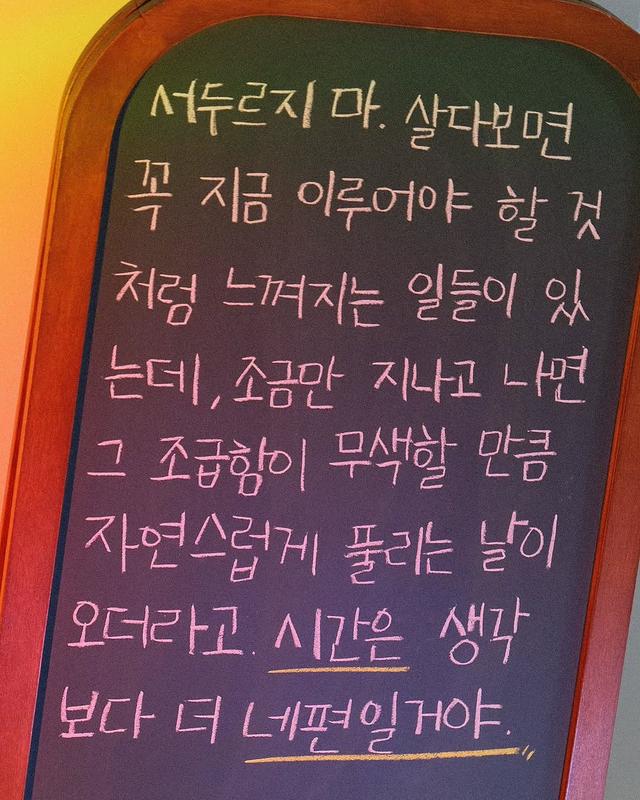 서두르지 마. 살다보면
꼭 지금 이루어야 할 것
처럼 느껴지는 일들이 있
는데, 조금만 지나고 나면
그 조급함이 무색할 만큼
자연스럽게 풀리는 날이
오더라고. 시간은 생각
보다 더 네편일거야.